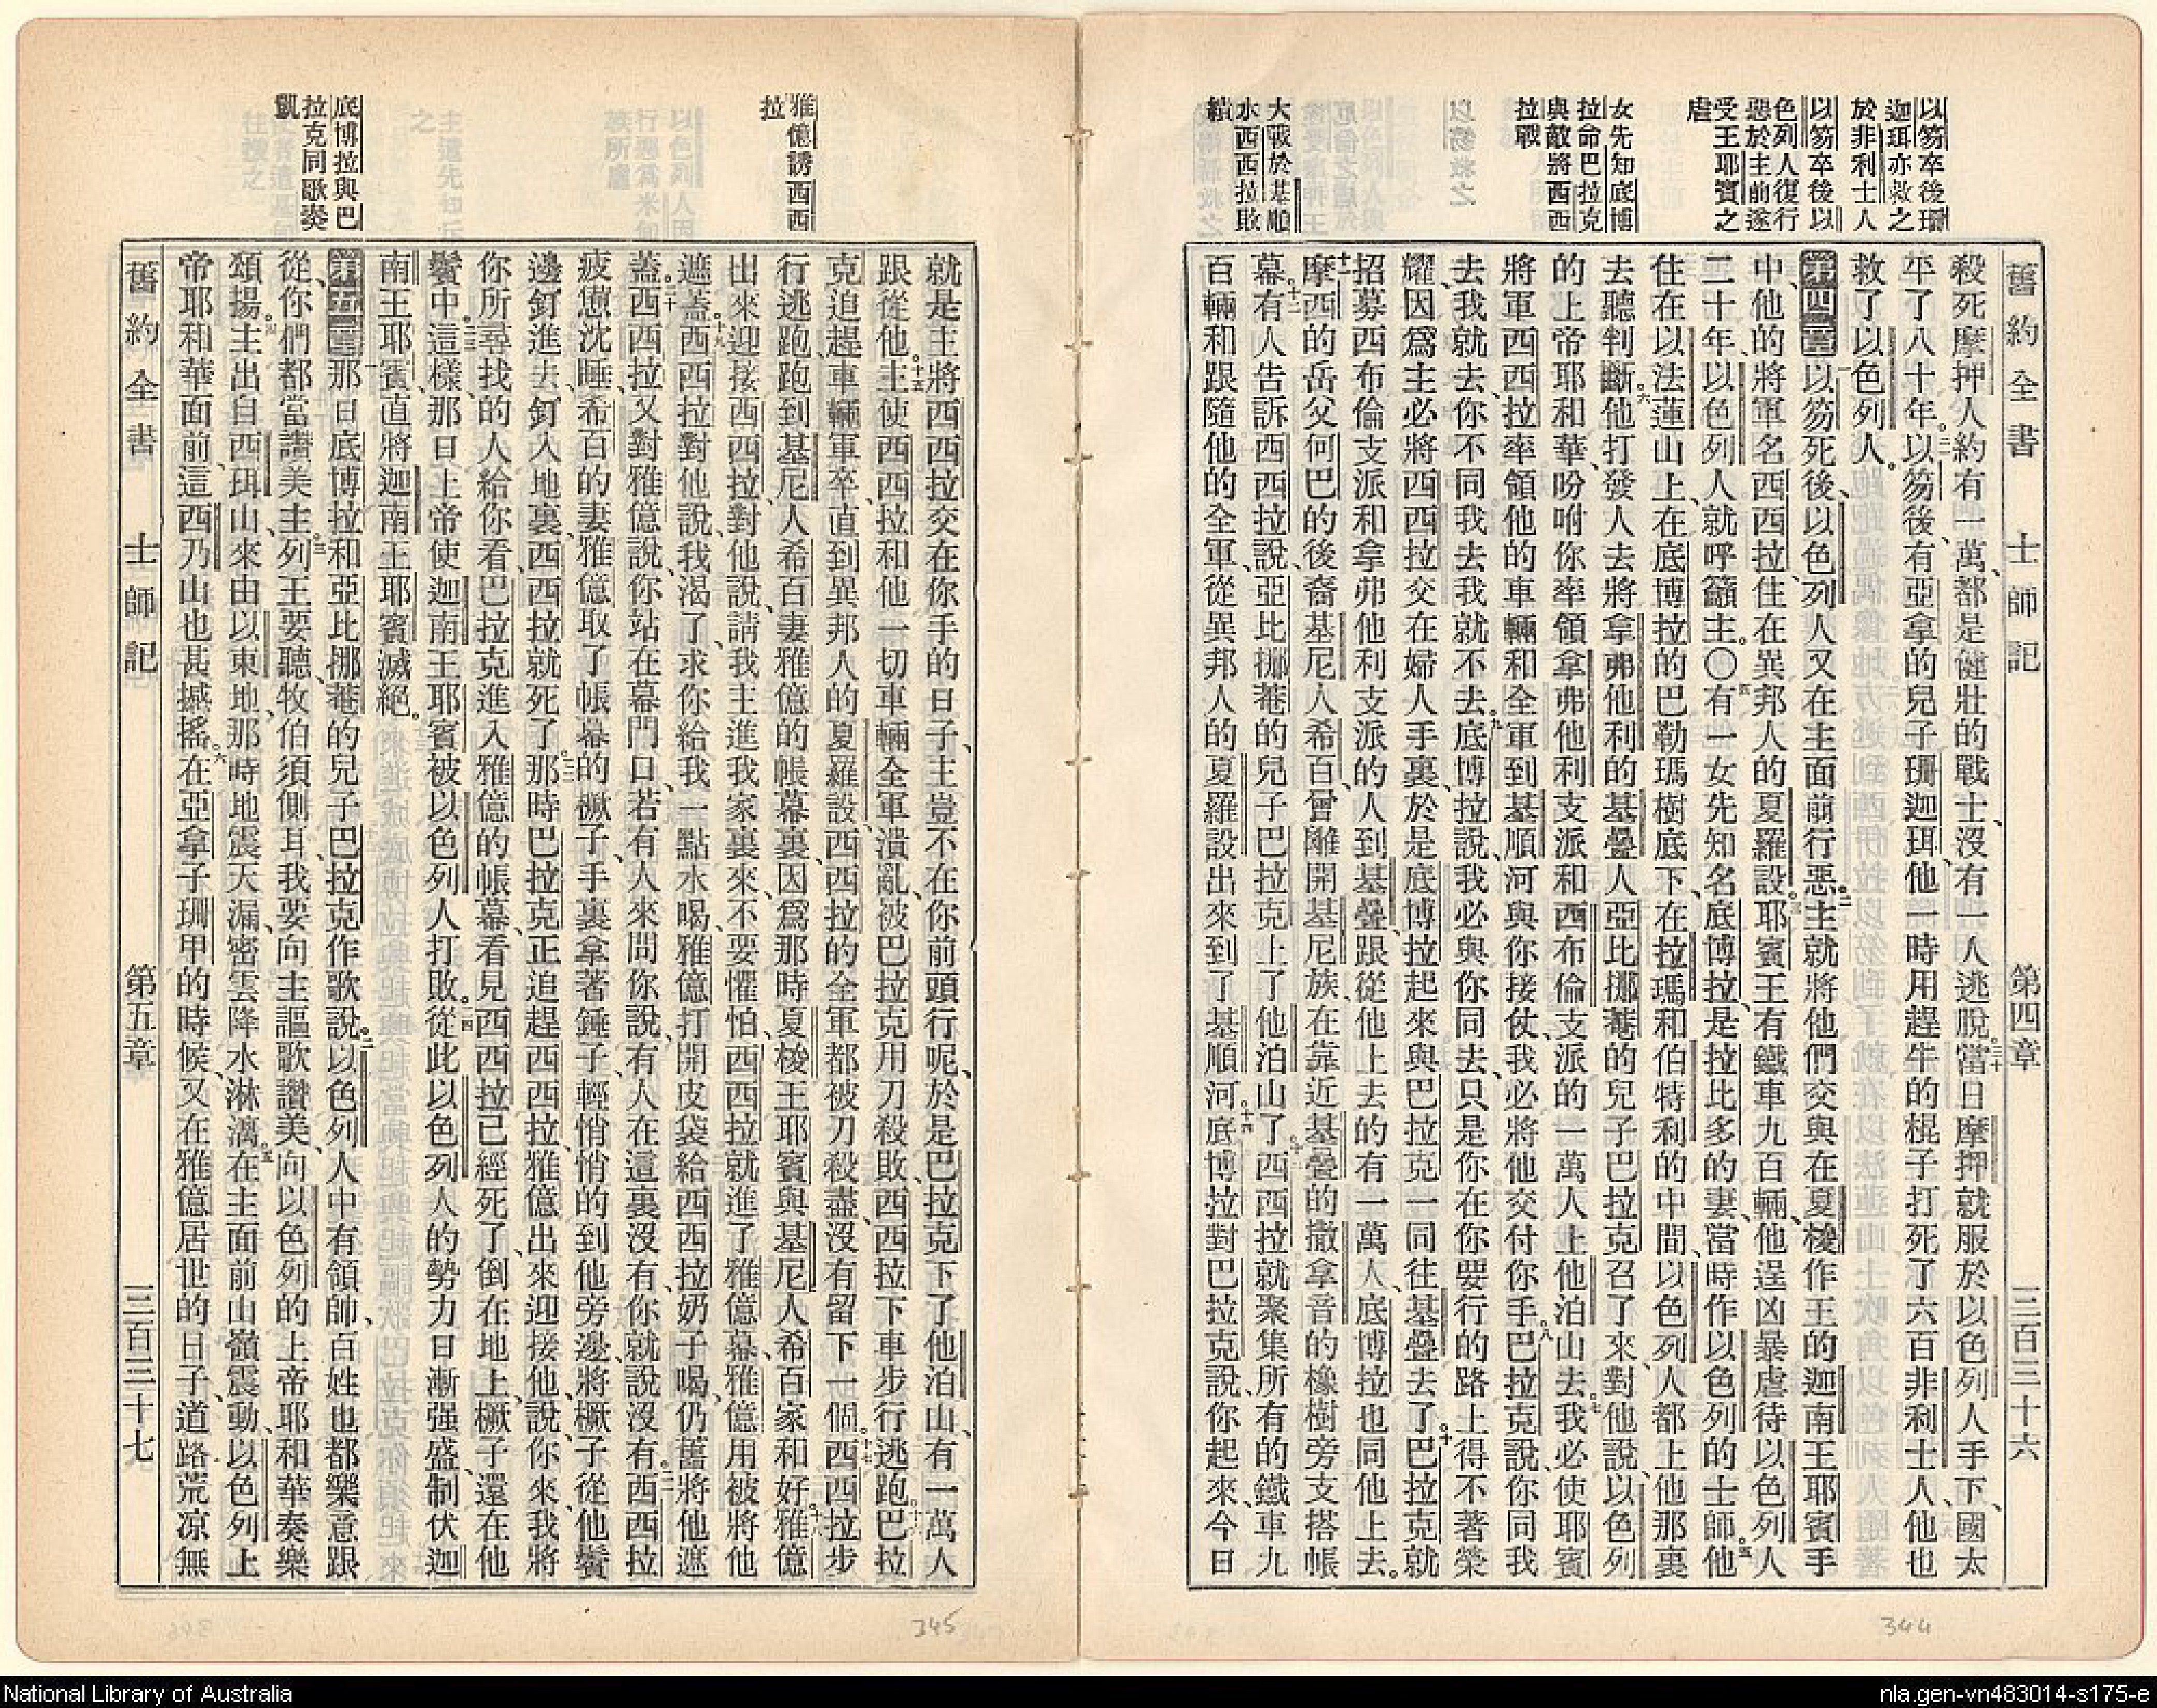 舊約全書　士師記　第四章　三百三十六
以笏卒後珊
迦珥亦救之
於非利士人
以笏卒後以
色列人復行
惡於主前遂
受王耶賓之
虐
女先知底博
拉命巴拉克
與敵將西西
拉戰
大戰於基順
水西西拉敗
績
殺死摩押人約有一萬、都是健壯的戰士、沒有一人逃脫。三十當日摩押就服於以色列人手下、國太
平了八十年。三一以笏後、有亞拿的兒子珊迦珥、他一時用趕牛的棍子打死了六百非利士人、他也
救了以色列人。
第四章一以笏死後、以色列人又在主面前行惡。二主就將他們交與在夏梭作王的迦南王耶賓手
中、他的將軍名西西拉、住在異邦人的夏羅設。三耶賓王有鐵車九百輛、他逞凶暴虐待以色列人
二十年、以色列人就呼籲主。〇四有一女先知名底博拉、是拉比多的妻、當時作以色列的士師。五他
住在以法蓮山上、在底博拉的巴勒瑪樹底下、在拉瑪和伯特利的中間、以色列人都上他那裏
去聽判斷。六他打發人去將拿弗他利的基疊人亞比挪菴的兒子巴拉克召了來、對他說、以色列
的上帝耶和華、吩咐你率領拿弗他利支派和西布倫支派的一萬人上他泊山去。七我必使耶賓
將軍西西拉率領他的車輛和全軍到基順河與你接仗、我必將他交付你手。八巴拉克說、你同我
去我就去、你不同我去我就不去。九底博拉說、我必與你同去、只是你在你要行的路上得不著榮
耀、因爲主必將西西拉交在婦人手裏、於是底博拉起來與巴拉克一同往基疊去了。十巴拉克就
招募西布倫支派和拿弗他利支派的人到基疊、跟從他上去的有一萬人、底博拉也同他上去。
十一摩西的岳父何巴的後裔基尼人希百、曾離開基尼族、在靠近基疊的撒拿音的橡樹旁支搭帳
幕。十二有人告訴西西拉說、亞比挪菴的兒子巴拉克上了他泊山了。十三西西拉就聚集所有的鐵車九
百輛和跟隨他的全軍、從異邦人的夏羅設出來到了基順河。十四底博拉對巴拉克說、你起來、今日
雅億誘西西
拉
底博拉與巴
拉克同歌奏
凱
就是主將西西拉交在你手的日子、主豈不在你前頭行呢、於是巴拉克下了他泊山、有一萬人
跟從他。十五主使西西拉和他一切車輛全軍、潰亂、被巴拉克用刀殺敗、西西拉下車步行逃跑。十六巴拉
克追趕車輛軍卒、直到異邦人的夏羅設、西西拉的全軍都被刀殺盡、沒有留下一個。十七西西拉步
行逃跑、跑到基尼人希百妻雅億的帳幕裏、因爲那時夏梭王耶賓與基尼人希百家和好。十八雅億
出來迎接西西拉、對他說、請我主進我家裏來、不要懼怕、西西拉就進了雅億幕、雅億用被將他
遮蓋。十九西西拉對他說、我渴了、求你給我一點水喝、雅億打開皮袋給西西拉奶子喝、仍舊將他遮
蓋。二十西西拉又對雅億說、你站在幕門口、若有人來問你說、有人在這裏沒有、你就說沒有。二一西西拉
疲憊沈睡、希百的妻雅億取了帳幕的橛子、手裏拿著錘子、輕悄悄的到他旁邊、將橛子從他鬢
邊釘進去、釘入地裏、西西拉就死了。二二那時巴拉克正追趕西西拉、雅億出來迎接他、說、你來、我將
你所尋找的人給你看、巴拉克進入雅億的帳幕、看見西西拉已經死了、倒在地上、橛子還在他
鬢中。二三這樣、那日上帝使迦南王耶賓被以色列人打敗。二四從此以色列人的勢力日漸强盛、制伏迦
南王耶賓、直將迦南王耶賓滅絕。
第五章一那日底博拉和亞比挪菴的兒子巴拉克作歌說。二以色列人中有領師、百姓也都樂意跟
從、你們都當讚美主。三列王要聽、牧伯須側耳、我要向主謳歌讚美、向以色列的上帝耶和華奏樂
頌揚。四主出自西珥山、來由以東地、那時地震天漏、密雲降水淋漓。五在主面前山嶺震動、以色列上
帝耶和華面前、這西乃山也甚撼搖。六在亞拿子珊甲的時候、又在雅億居世的日子、道路荒凉無
舊約全書　士師記　第五章　三百三十七
344
345
National Library of Australia
nla.gen-vn483014-s175-e